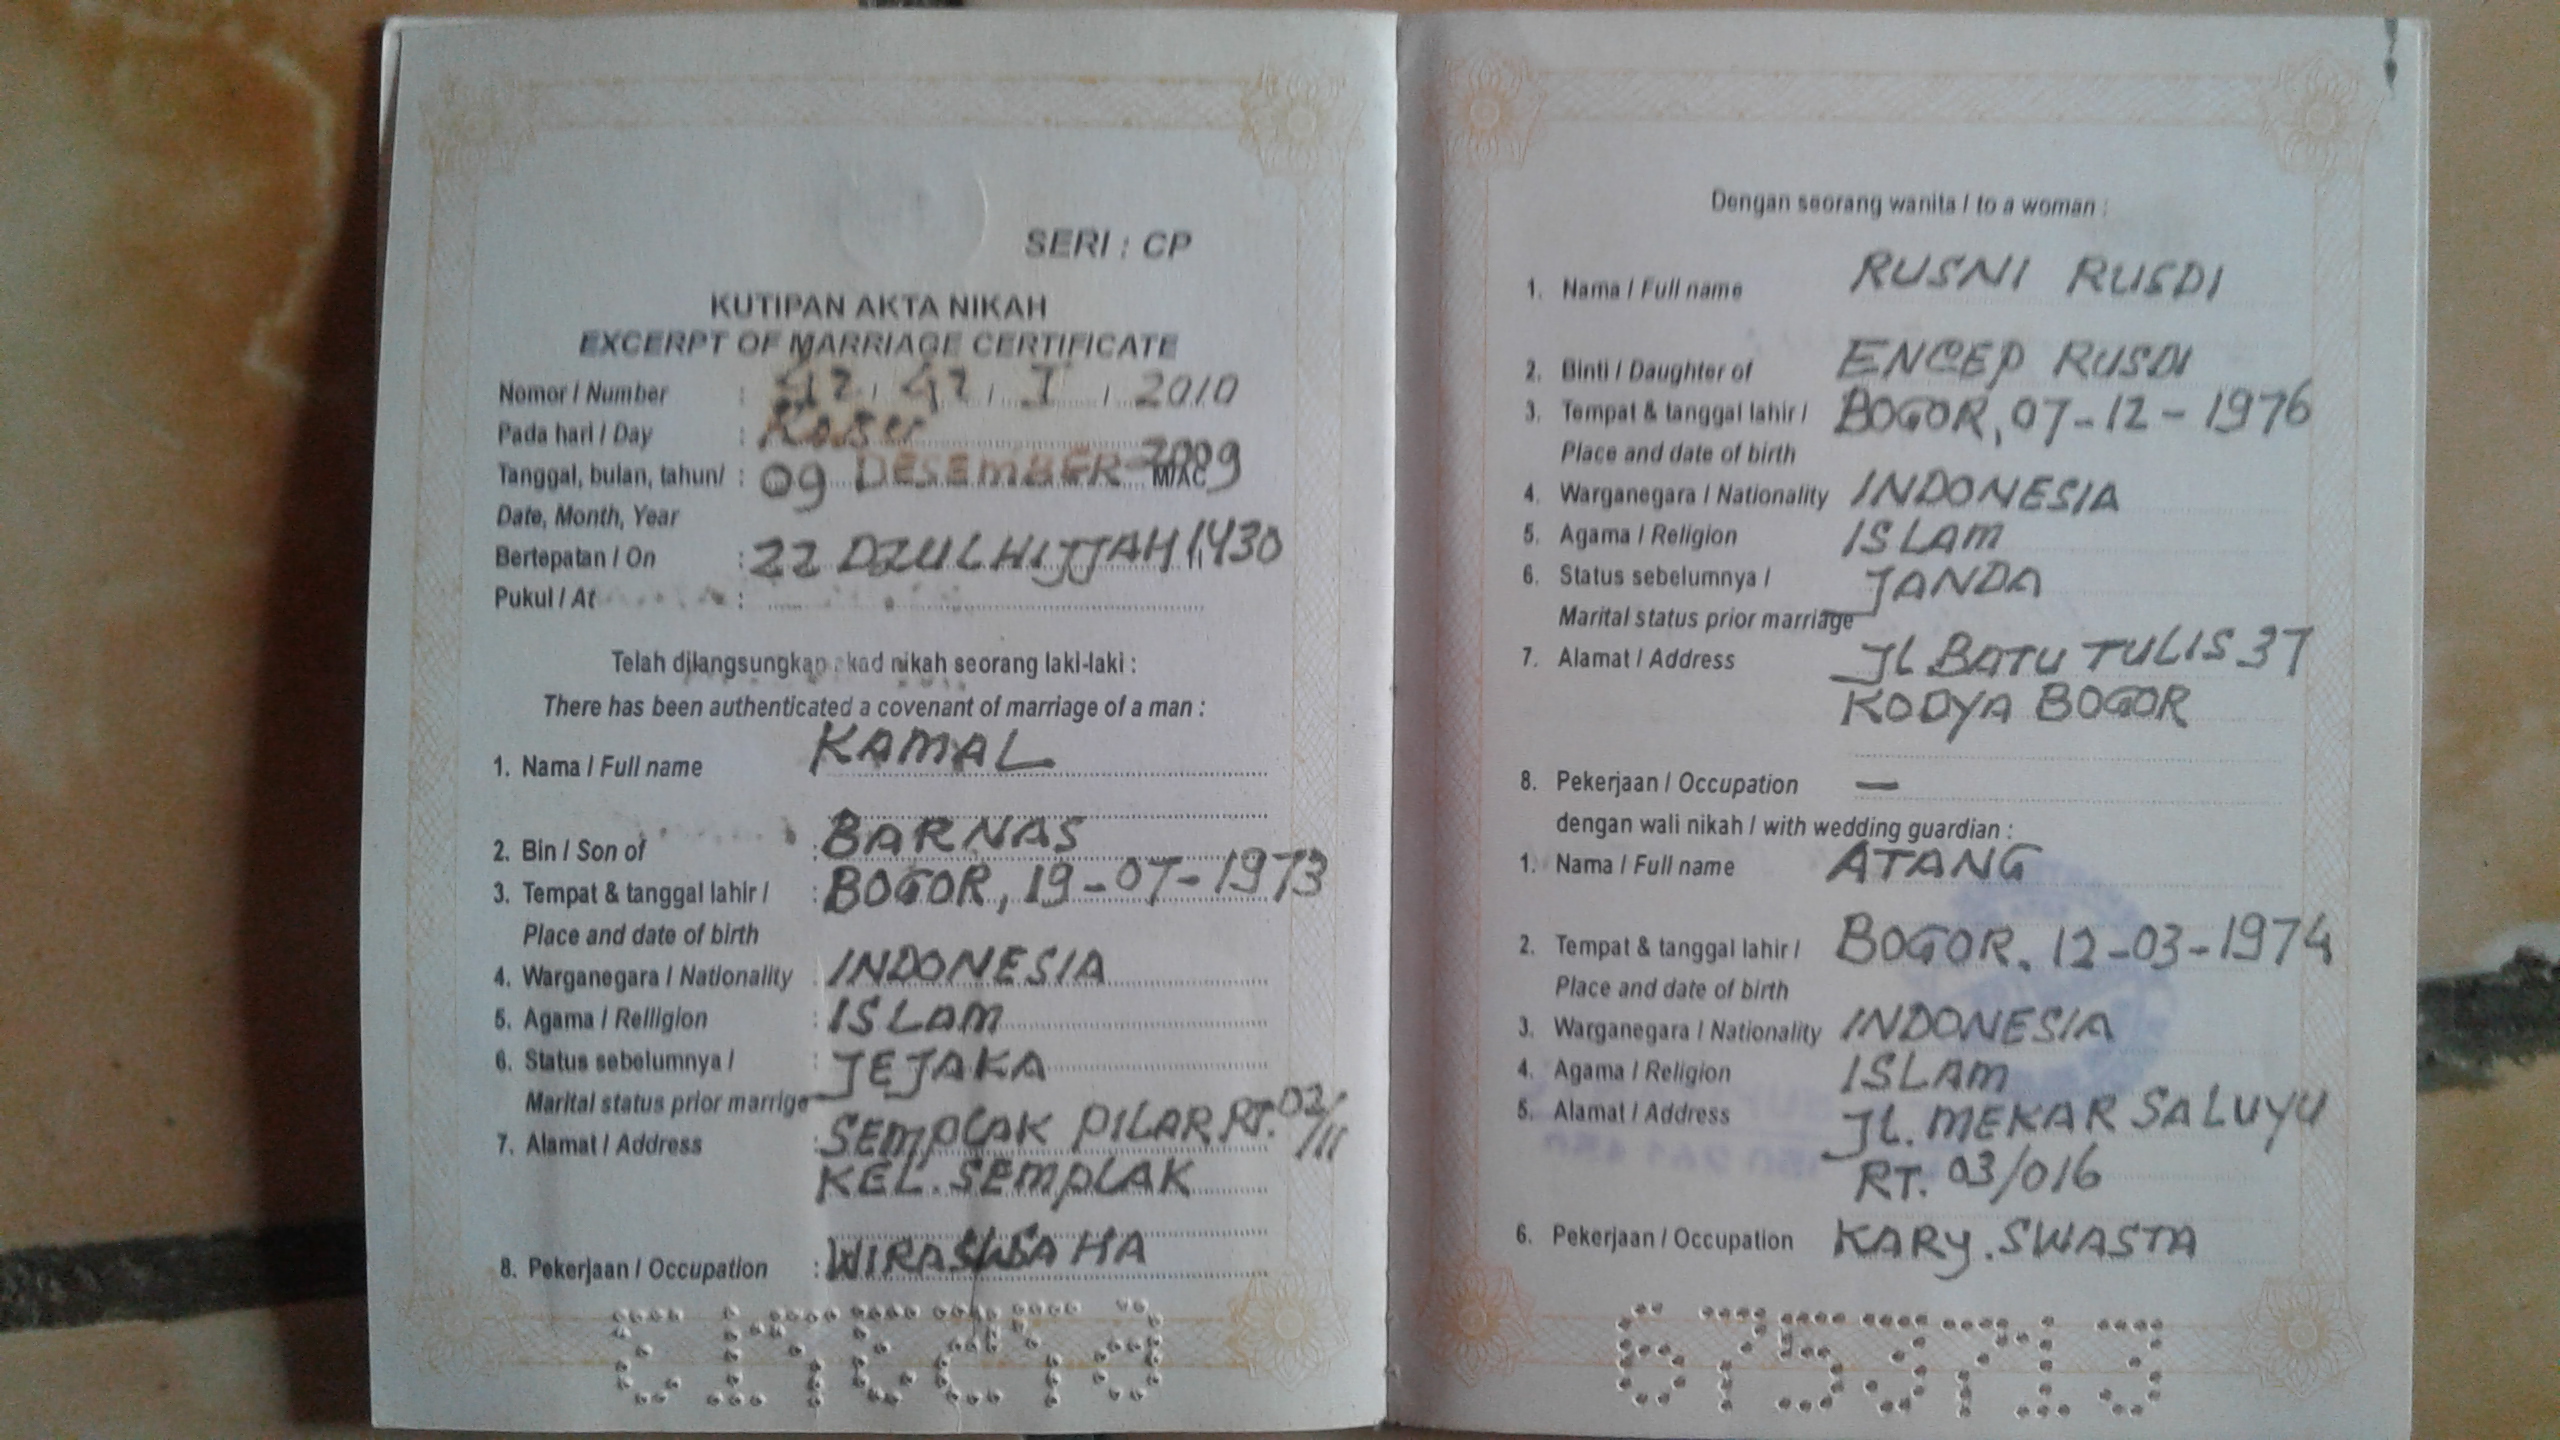 SERI : CP
KUTIPAN AKTA NIKAH
EXCERPT OF MARRIAGE CERTIFICATE
Nomor / Number : 42 / 42 / I / 2010
Pada hari / Day : RABU
Tanggal, bulan, tahun/ : 09 DESEMBER 2009 M/AC
Date, Month, Year
Bertepatan / On : 22 DZULHIJJAH 1430
Pukul / At :
Telah dilangsungkan akad nikah seorang laki-laki :
There has been authenticated a covenant of marriage of a man :
1. Nama / Full name KAMAL
2. Bin / Son of : BARNAS
3. Tempat & tanggal lahir / : BOGOR, 19-07-1973
Place and date of birth
4. Warganegara / Nationality : INDONESIA
5. Agama / Relligion : ISLAM
6. Status sebelumnya / : JEJAKA
Marital status prior marrige
7. Alamat / Address : SEMPLAK PILAR RT. 02/11
KEL. SEMPLAK
8. Pekerjaan / Occupation : WIRASWSAHA
Dengan seorang wanita / to a woman :
1. Nama / Full name RUSNI RUSDI
2. Binti / Daughter of ENCEP RUSDI
3. Tempat & tanggal lahir / BOGOR, 07-12-1976
Place and date of birth
4. Warganegara / Nationality INDONESIA
5. Agama / Religion ISLAM
6. Status sebelumnya / JANDA
Marital status prior marriage
7. Alamat / Address JL BATU TULIS 37
KODYA BOGOR
8. Pekerjaan / Occupation —
dengan wali nikah / with wedding guardian :
1. Nama / Full name ATANG
2. Tempat & tanggal lahir / BOGOR. 12-03-1974
Place and date of birth
3. Warganegara / Nationality INDONESIA
4. Agama / Religion ISLAM
5. Alamat / Address JL. MEKAR SALUYU
RT. 03/016
6. Pekerjaan / Occupation KARY. SWASTA
6753713